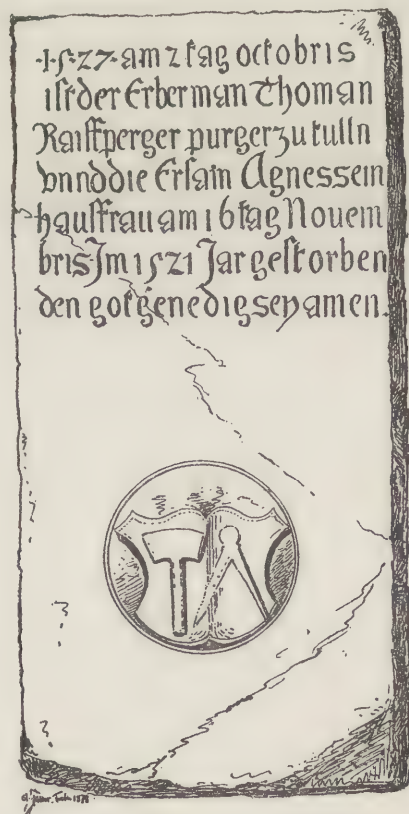 ·1·5·27· am 2 tag octobris
ist der Erber man Thoman
Raiffperger purger zu tulln
vnnd die Ersam Agnes sein
hauffrau am 16 tag Nouem
bris Jm 1521 Jar gestorben
den got genedig sey amen.